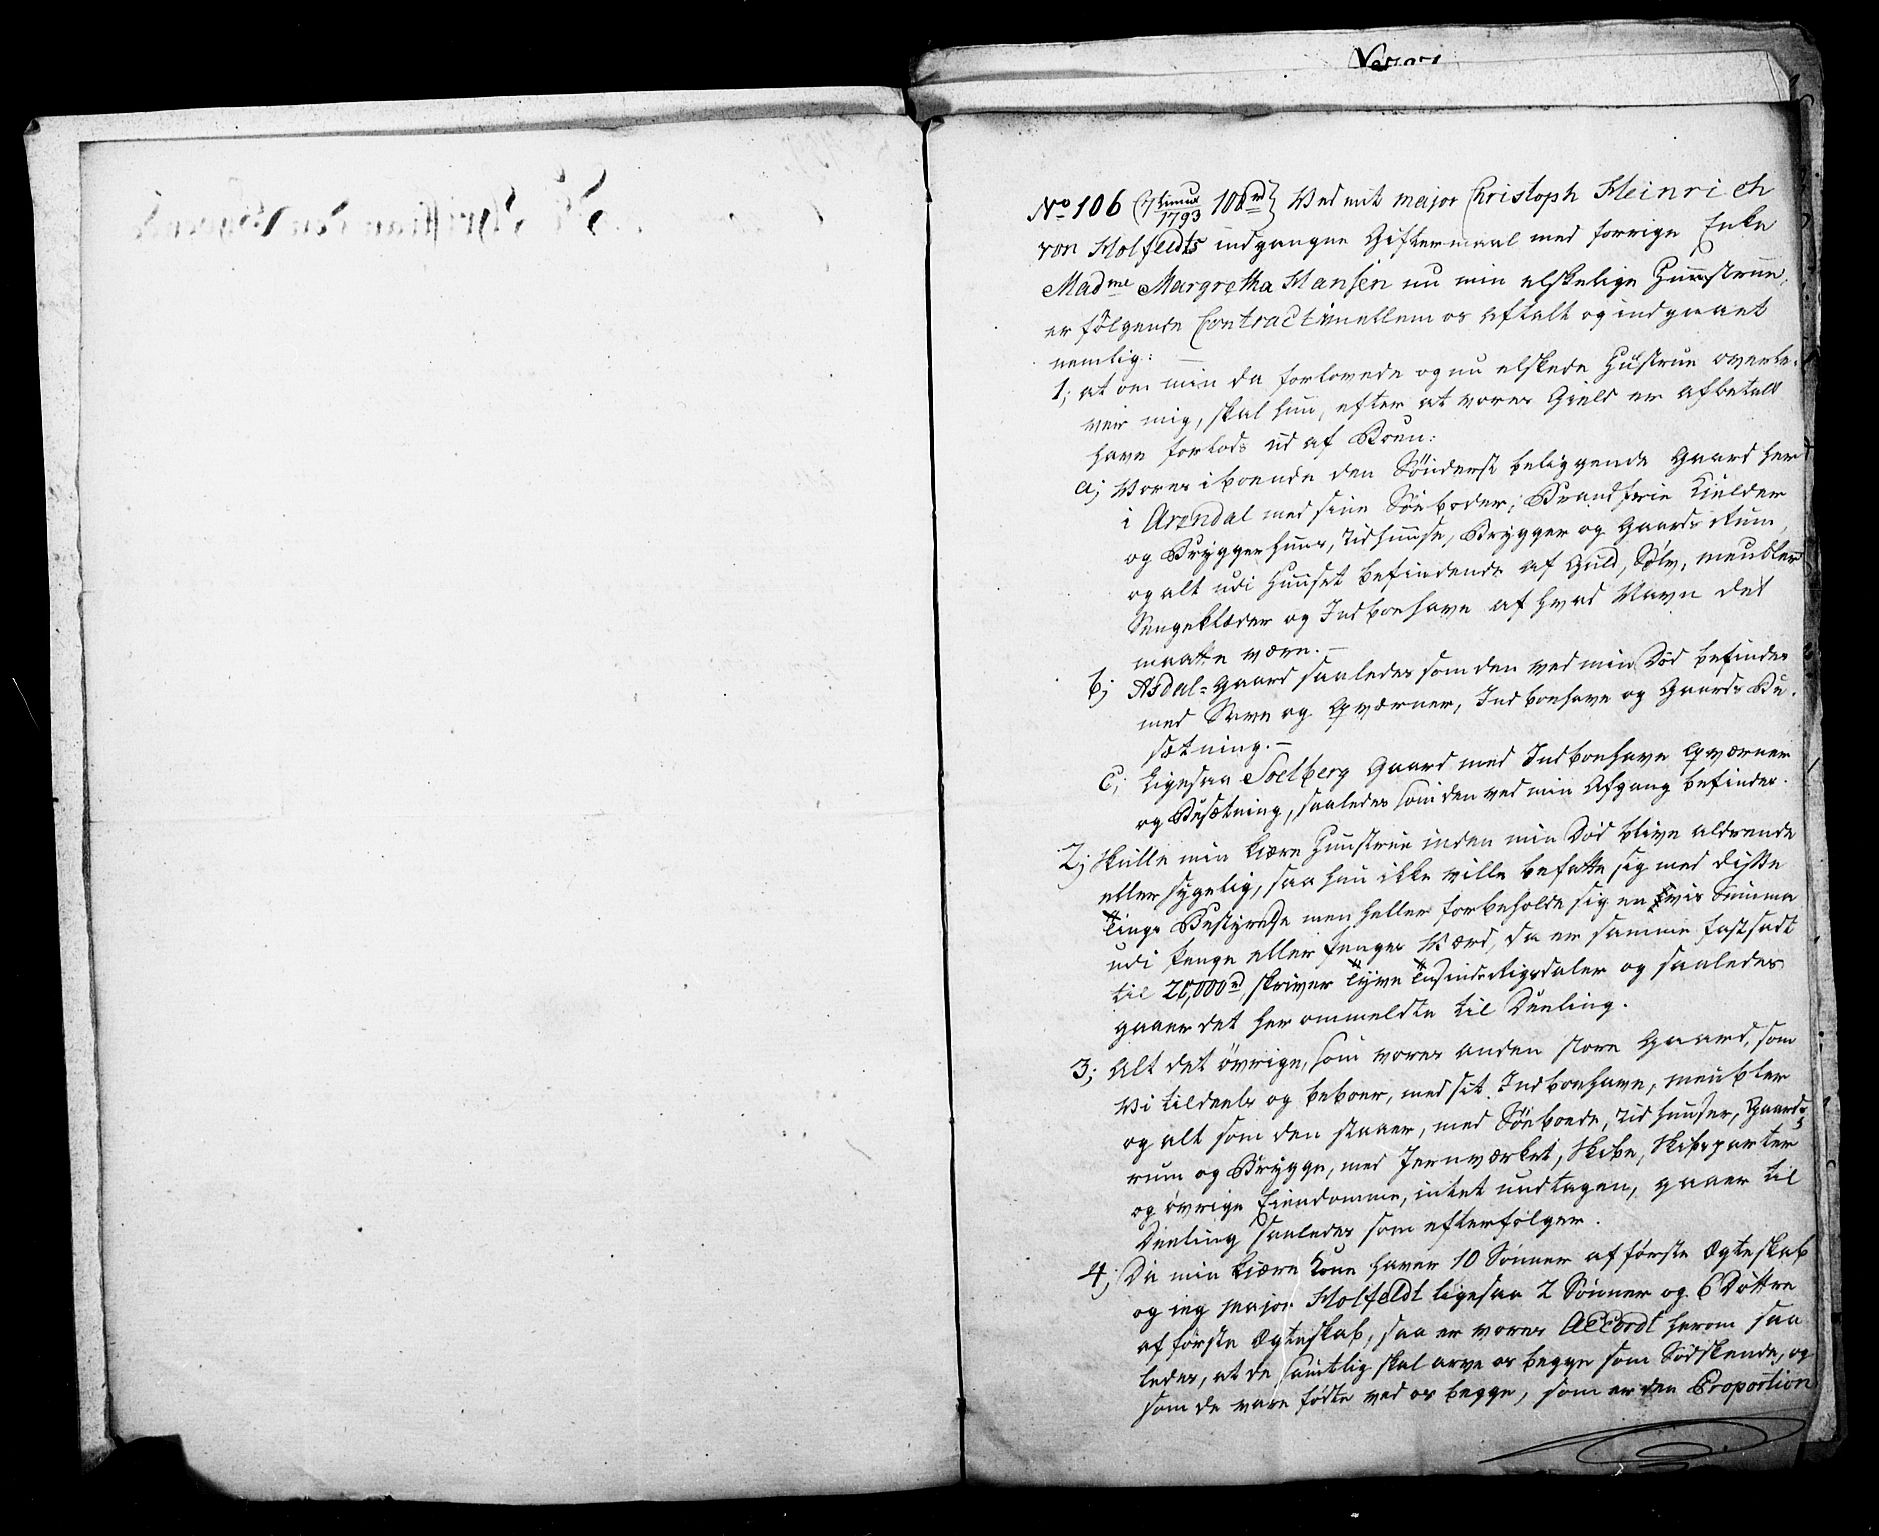 No 106 (7 1793 10 rd) Ved mit major Christoph Heinrich
von Holfeldts indgangne Giftermaal med forrige Enke
Madme Margretha Hansen nu min elskelige Huustrue,
er følgende Contract imellem os aftalt og indgaaet
nemlig:
1; at om min da forlovede og nu elskede Hustrue overle-
ver mig, skal hun, efter at vores Gield er afbetalt
have forlods ud af Boen:
a; Vores iboende den Sønderst beliggende Gaard her
i Arendal med sine Søeboder, Brandfrie Kielder
og Bryggerhuus, Udhuuse, Brygger og Gaards Rum,
og alt udi Huuset befindende af Guld, Sølv, meubler
Sengeklæder og Indboehave af hvad Navn det
maatte være.
b; Asdal-Gaard saaledes som den ved min Død befindes
med Save og Qværner, Indboehave og Gaards Be-
sætning.
C; Ligesaa Soelberg Gaard med Indboehave Qværner
og Besætning, saaledes som den ved min Afgang befindes.
2; Skulle min kiære Huustrue inden min Død blive aldrende
eller sygelig, saa hun ikke ville befatte sig med disse
Tings Bestyrelse men heller forbeholde sig en vis Summa
udi Penge eller Penges Værd, da er samme fastsadt
til 20,000 rd skriver Tyve Tusinde Rigsdaler og saaledes
gaaer det her ommeldte til Deeling.
3; Alt det øvrige, som vores anden store Gaard, som
Vi tildeels og beboer, med sit Indboehave, meubler
og alt som den staaer, med Søeboede, Udhuuser, Gaards-
rum og Brygge, med Jernværket, Skibe, Skibsparter
og øvrige Eiendomme, intet undtagen, gaaer til
Deeling saaledes som efterfølger.
4; Da min kiære Kone haver 10 Sønner af første Ægteskab
og ieg major Holfeldt ligesaa 2 Sønner og 6 Døttre
af første Ægteskab, saa er vores Accordt herom saa
ledes, at de samtlig skal arve os begge som Sødskende, og
som de vare fødte ved os begge, som er den Proportion